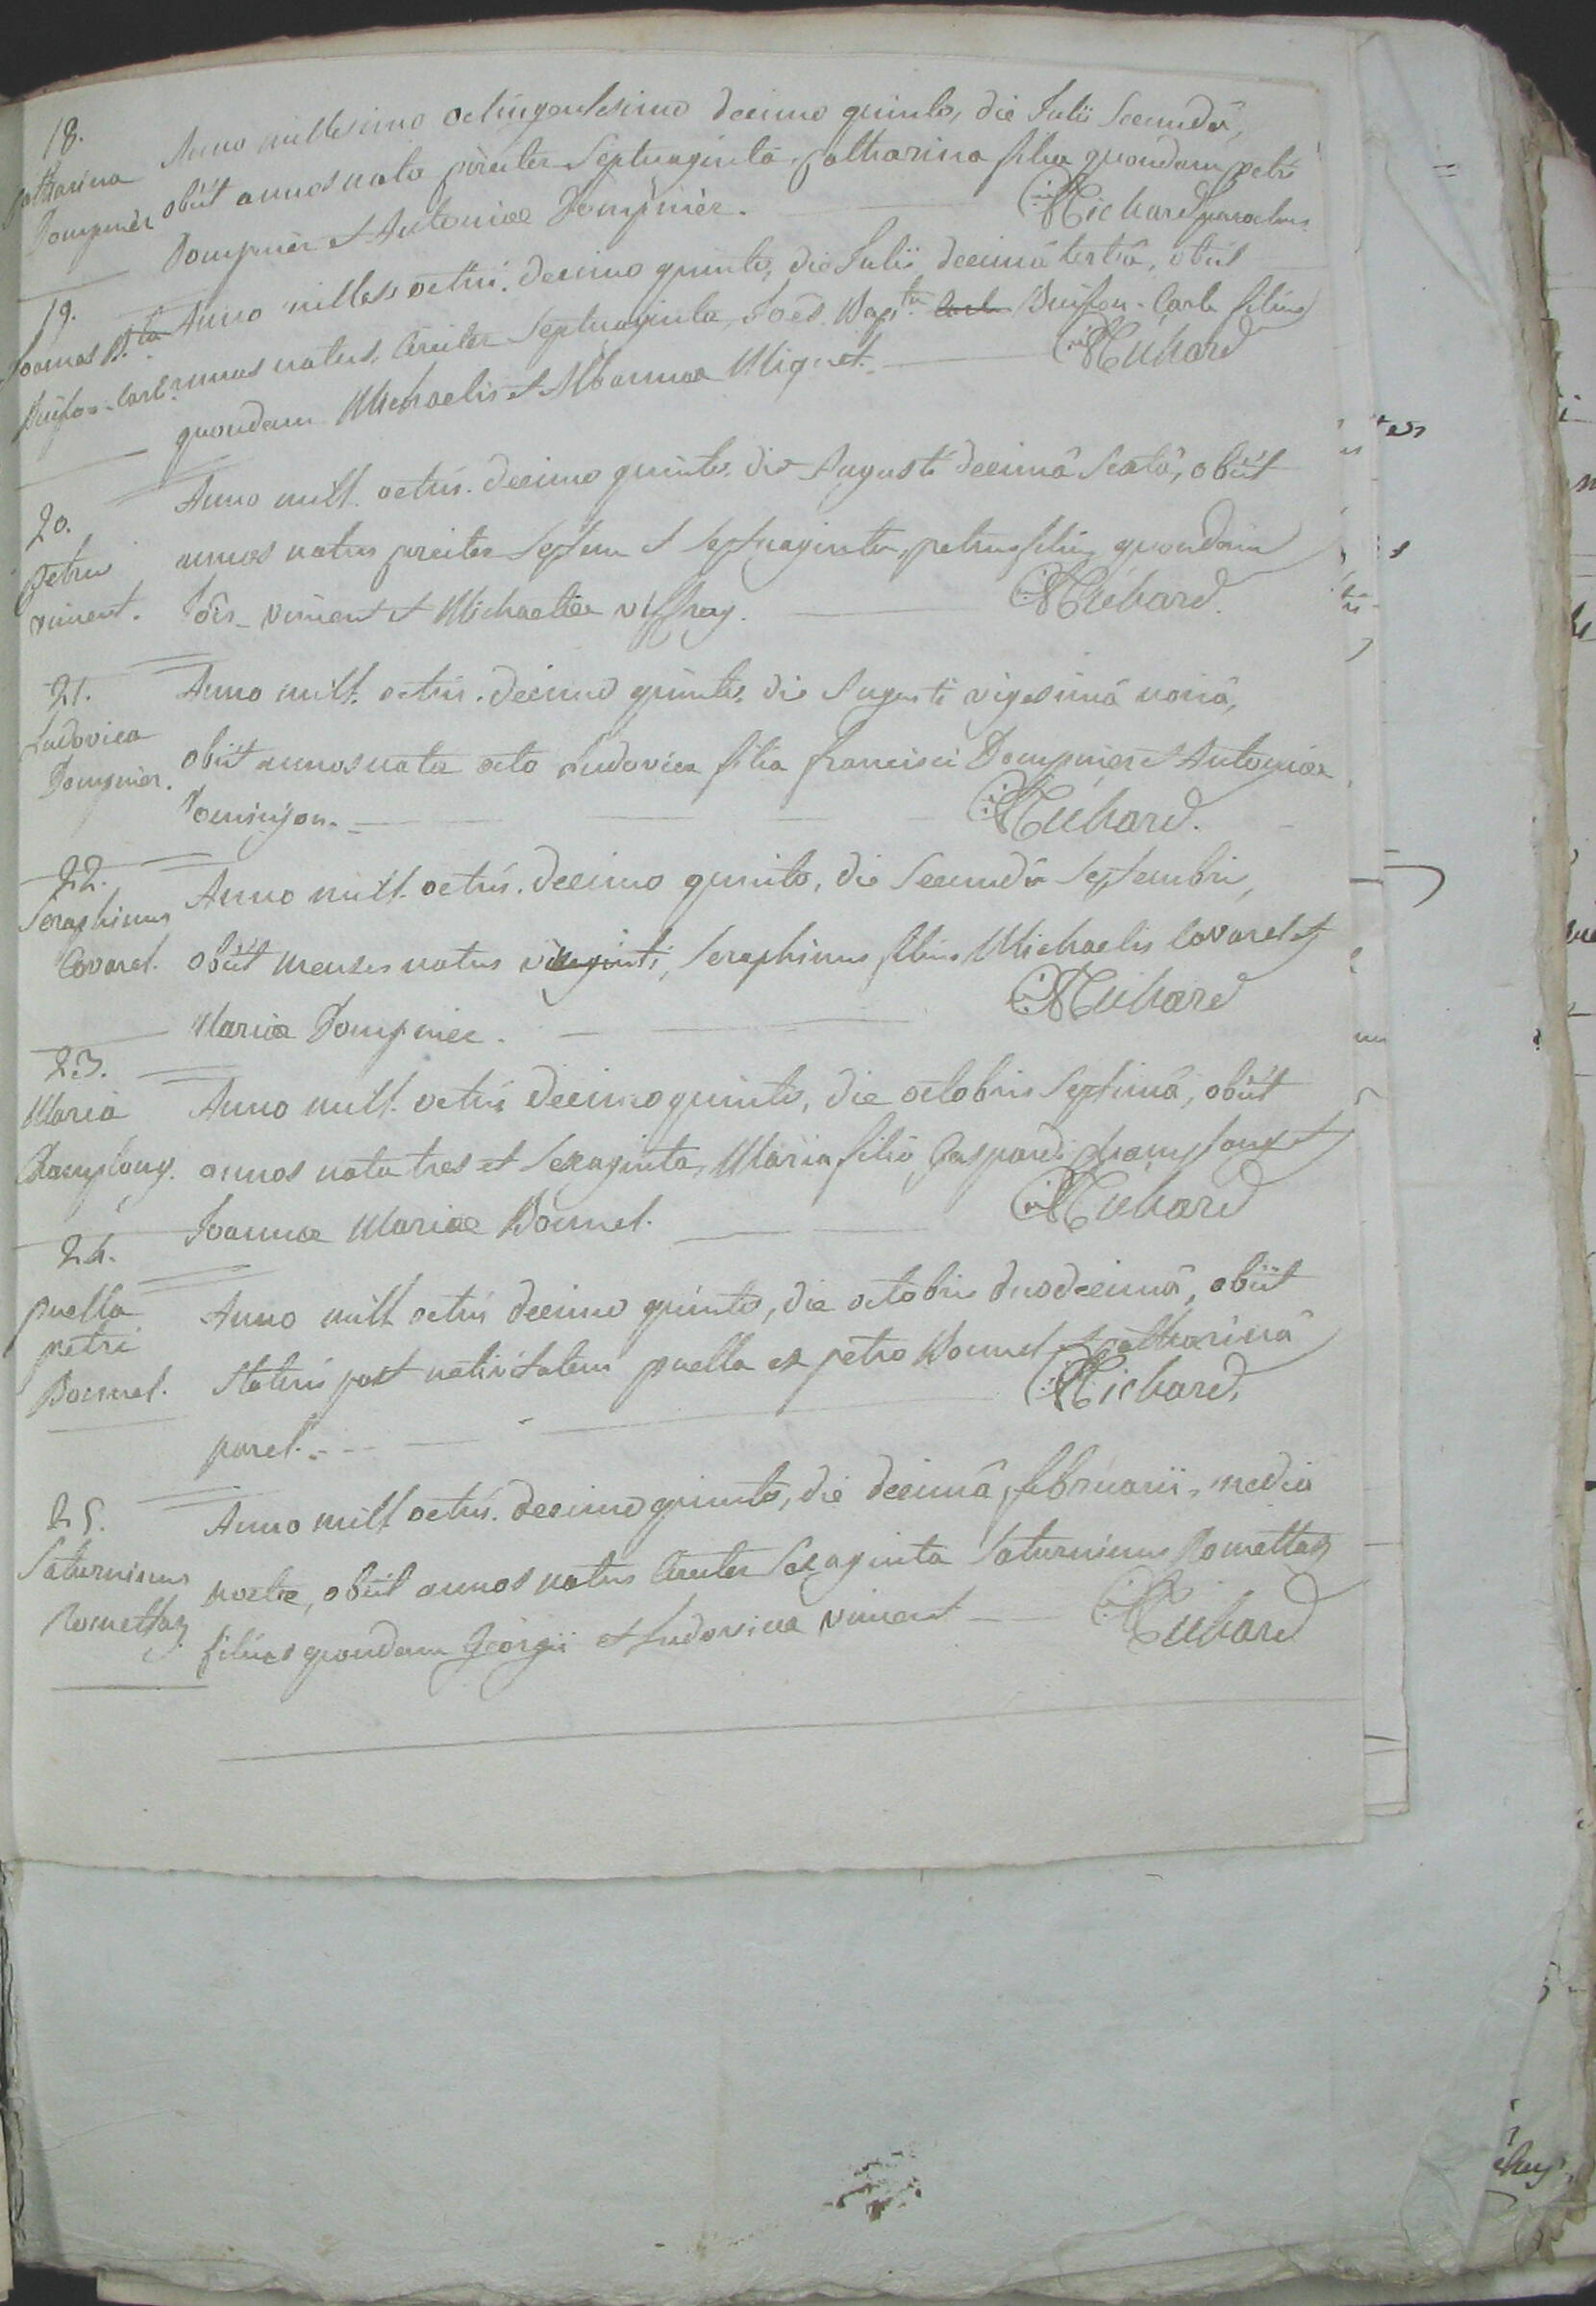 18.
Catharina
Dompnier
Anno millesimo octingentesimo decimo quinto, die Julii secundâ,
obiit annos nata circiter septuaginta, catharina filia quondam petri
Dompnier et Antoniae Dompnier. Richard parochus
19.
Joannes B.ta
Buffon-Carle
Anno milless octin. decimo quinto, die Julii decimâ tertiâ, obiit
annos natus circiter septuaginta, Joes Bap.ta Buffon-Carle filius
quondam Michaelis et Albannae Miquet. Richard
20.
petrus
vincent.
Anno mill. octin. decimo quinto, die Augusti decimâ sextâ, obiit
annos natus circiter septem et septuaginta, petrus filius quondam
Jois vincent et Michaeliae viffrey. Richard.
21.
Ludovica
Dompnier.
Anno mill. octin. decimo quinto, die Augusti vigesimâ nonâ,
obiit annos nata octo Ludovica filia francisci Dompnier et Antoniae
Dominjon. Richard.
22.
Seraphinus
Covarel.
Anno mill. octin. decimo quinto, die secundâ septembris,
obiit menses natus viginti, Seraphinus filius Michaelis Covarel et
Mariae Dompnier. Richard
23.
Maria
Champlong.
Anno mill. octin decimo quinto, die octobris septimâ, obiit
annos nata tres et sexaginta, Maria filia Gaspardi champlong et
Joannae Mariae Bonnel. Richard
24.
puella
petri
Bonnel.
Anno mill octin decimo quinto, die octobris duodecimâ, obiit
statim post nativitatem puella ex petro Bonnel et catharinâ
poret. Richard.
25.
Saturninus
Romettaz
Anno mill octin. decimo quinto, die decimâ februarii, media
nocte, obiit annos natus circiter sexaginta Saturninus Romettaz
filius quondam Georgii et Ludovicae vincent Richard